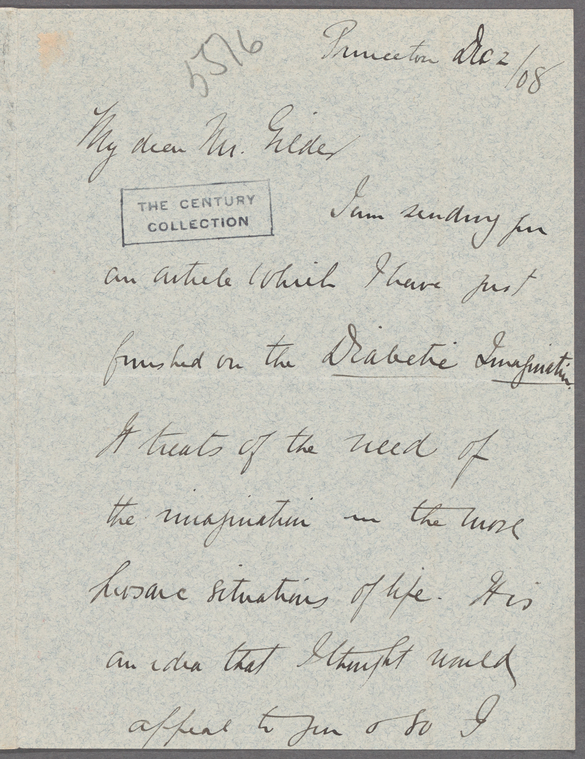 5576
Princeton Dec 2/08
My dear Mr. Gilder
THE CENTURY
COLLECTION
I am sending you
an article which I have just
finished on the Diabetic Imagination.
It treats of the need of
the imagination in the more
prosaic situations of life. It is
an idea that I thought would
appeal to you & so I